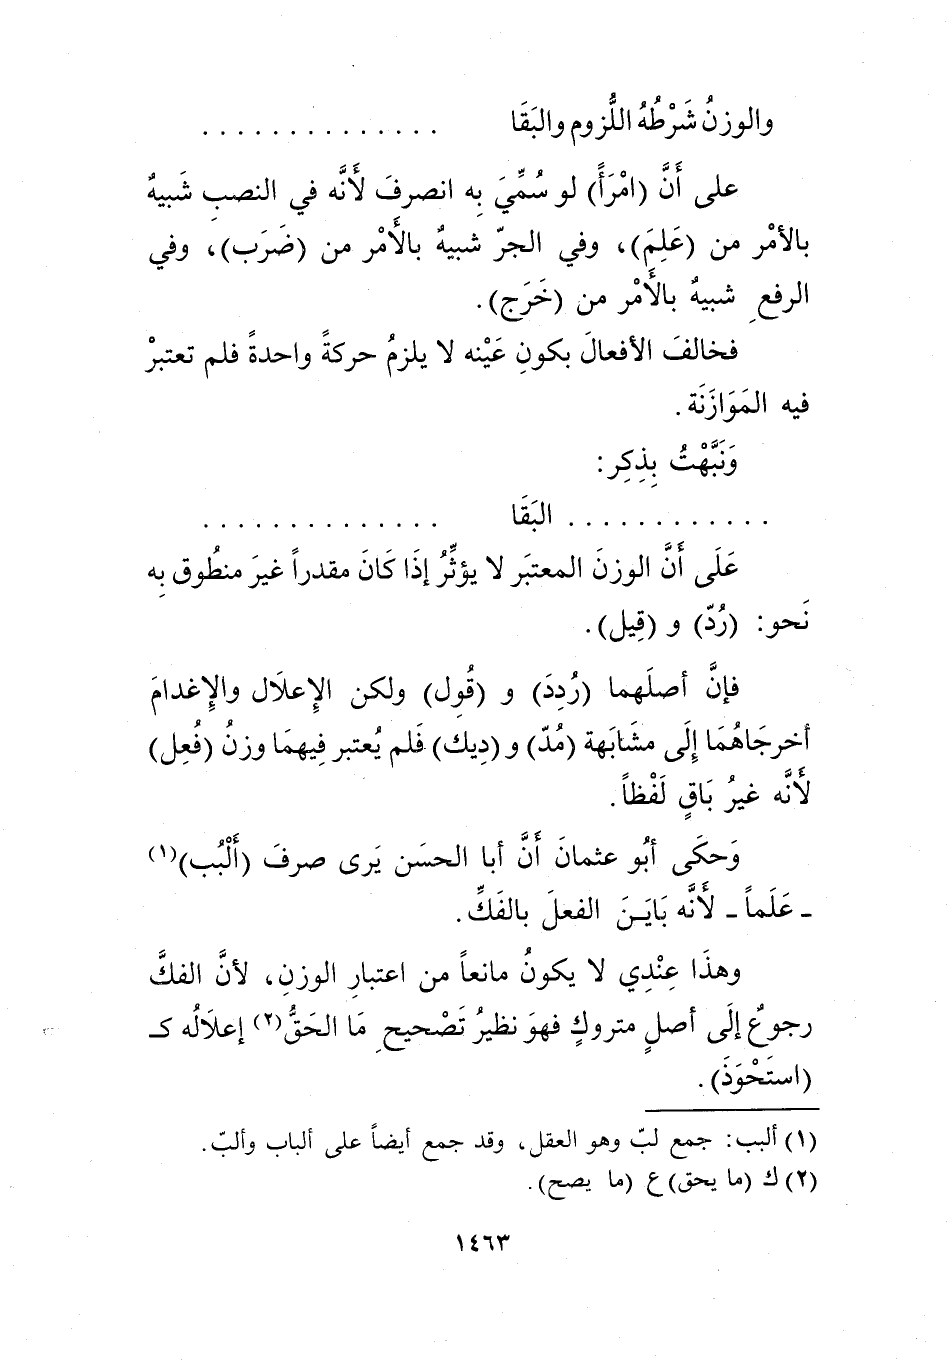 والوزنُ شَرْطُهُ اللُّزوم والبَقَا . . . . . . . . . . . . . .
على أَنَّ (امْرَأً) لو سُمِّيَ بِه انصرفَ لأَنَّه في النصبِ شَبيهٌ
بالأمْر من (عَلِمَ)، وفي الجرّ شبيهٌ بالأَمْر من (ضَرَب)، وفي
الرفعِ شبيهٌ بالأَمْر من (خَرَج).
فخالفَ الأفعالَ بكونِ عَيْنه لا يلزمُ حركةً واحدةً فلم تعتبرْ
فيه المَوَازَنَة.
وَنَبَّهْتُ بِذِكِر:
. . . . . . . . . . . . البَقَا . . . . . . . . . . . . . .
عَلَى أَنَّ الوزنَ المعتبَر لا يؤثِّرُ إذَا كَانَ مقدراً غيرَ منطُوق بِه
نَحو: (رُدّ) و (قِيل).
فإنَّ أصلَهما (رُدِدَ) و (قُوِل) ولكن الإِعلَال والإِغدامَ
أخرجَاهُمَا إلَى مشَابَهة (مُدّ) و(دِيك) فَلم يُعتبر فِيهمَا وزنُ (فُعِل)
لأَنَّه غيرُ بَاقٍ لَفْظاً.
وَحكَى أبُو عثمانَ أَنَّ أبا الحسَن يَرى صرفَ (أَلْبُب)(١)
ـ عَلَماً ـ لأَنَّه بَايَنَ الفعلَ بالفَكِّ.
وهذَا عِنْدِي لا يكونُ مانعاً من اعتبارِ الوزنِ، لأنَّ الفكَّ
رجوعٌ إلَى أصلٍ متروكٍ فهوَ نظيرُ تَصْحيحِ مَا الحَقُّ(٢) إعلَالُه كـ
(استَحْوَذَ).
(١) ألبب: جمع لبّ وهو العقل، وقد جمع أيضاً على ألباب وألبّ.
(٢) ك (ما يحق) ع (ما يصح).
١٤٦٣